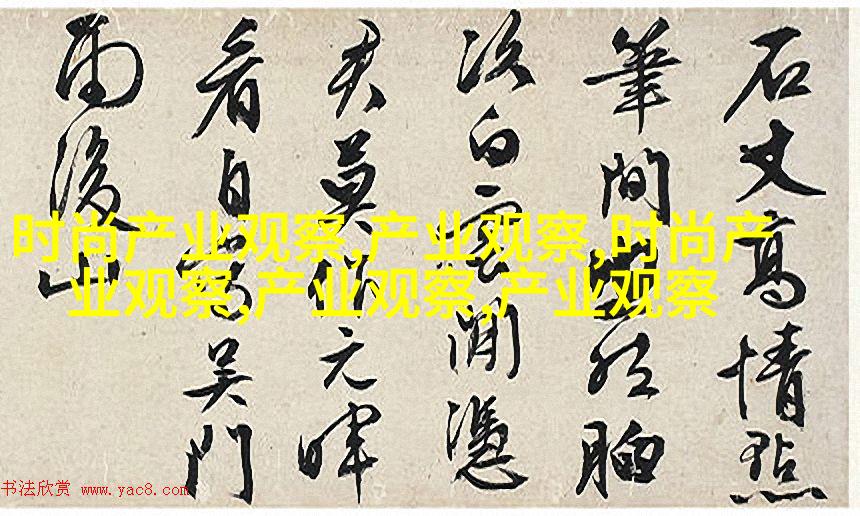 石丈高情點
筆間胸
次白雲閒憑
君莫元暉
看自寫吳門
雨後山
时尚产业观察,产业观察,时尚产
业观察,产业观察,产业观察
书法欣赏 www.yac8.com